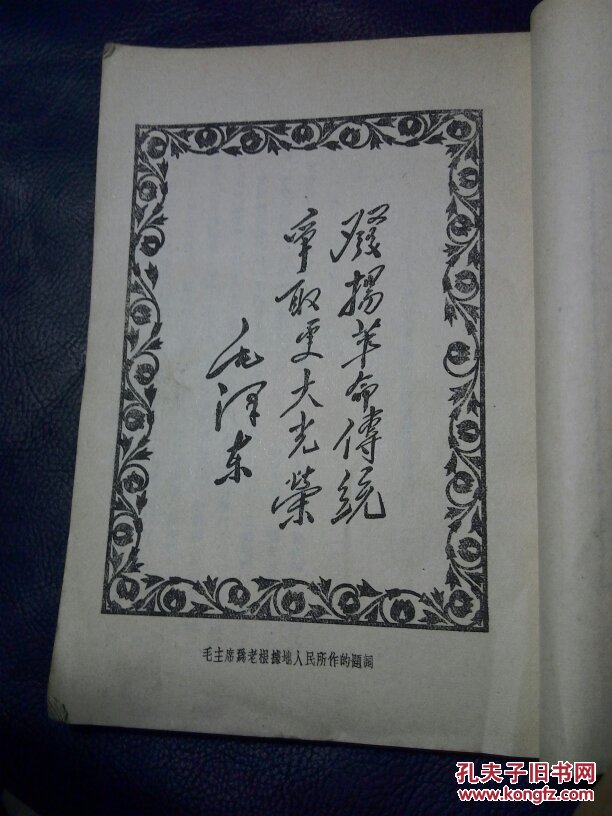 發揚革命傳統
爭取更大光榮
毛澤东
毛主席爲老根據地人民所作的題詞
孔夫子旧书网
www.kongfz.com